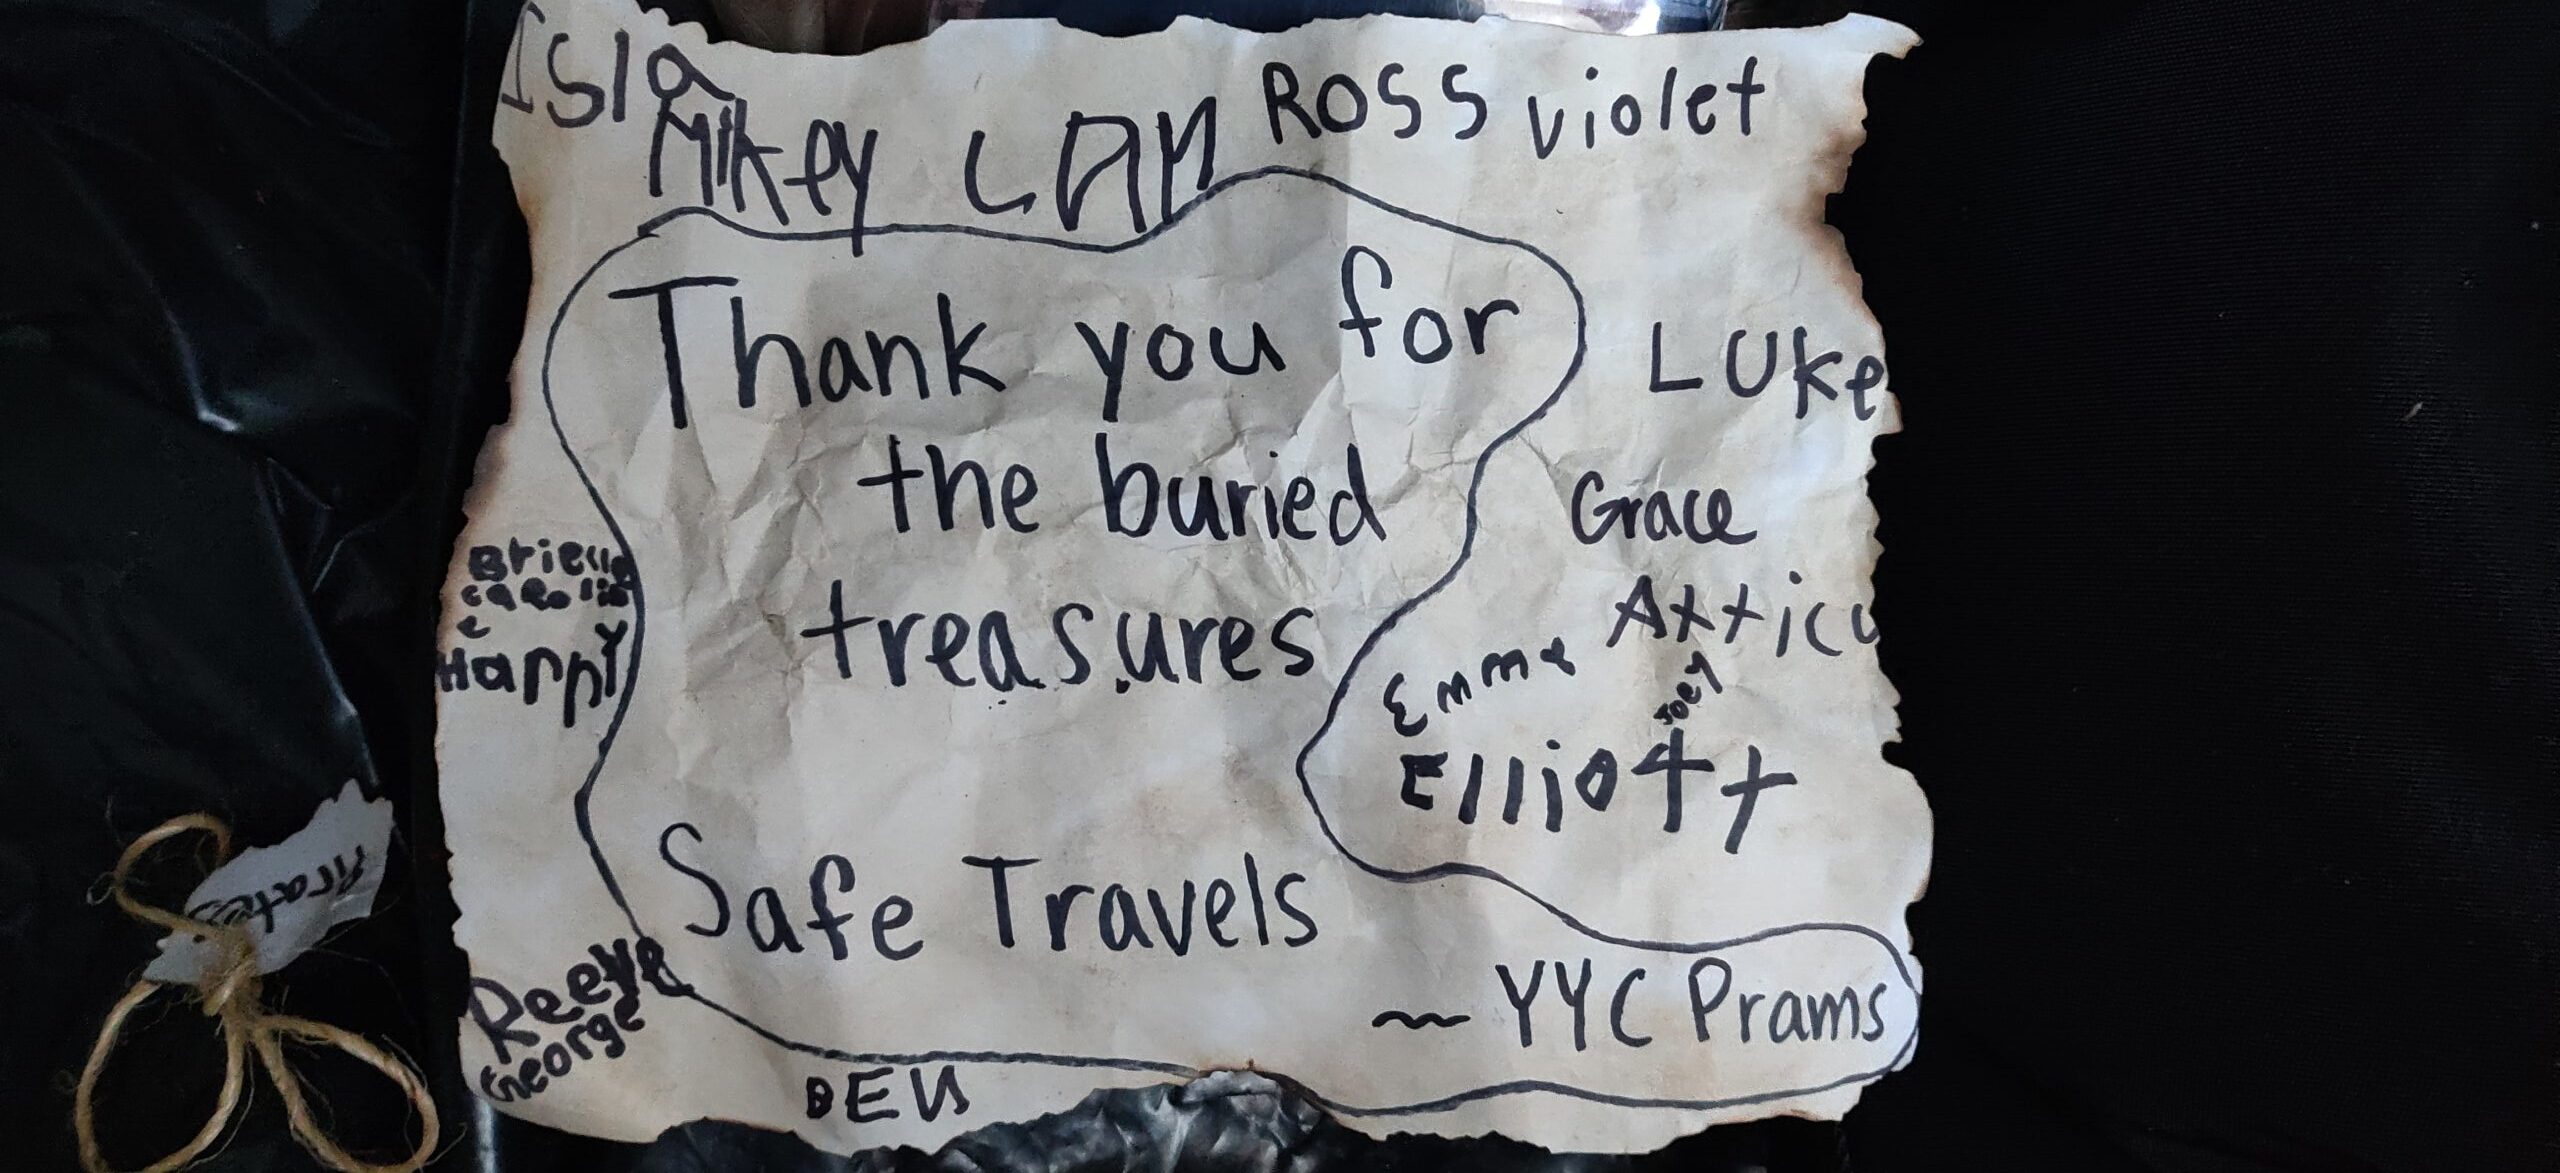 Isla
Mikey LAM ROSS Violet
Thank you for
the buried
treasures
Safe Travels
~ YYC Prams
Luke
Grace
Atticu
Emma
Joey
Elliott
Brielle
Carolin
e
Happy
Reeve
George
BEN
Pirates